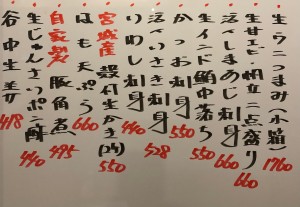 生うにつまみ(小箱) 1760
生甘エビ帆立二点盛り 660
活〆しまあじ刺身 660
生インド鮪中落ち 550
かつお刺身 550
活〆いさき刺身 528
いわし刺身 440
宮城産 殻付生かき(2ケ) 550
はも天ぷら 660
自家製 豚角煮 495
生じゅんさいポン酢 440
谷中生姜 418